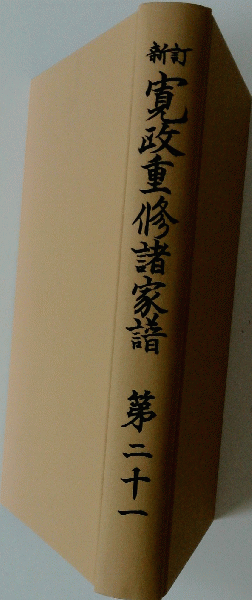 新訂
寛政重修諸家譜
第二十一